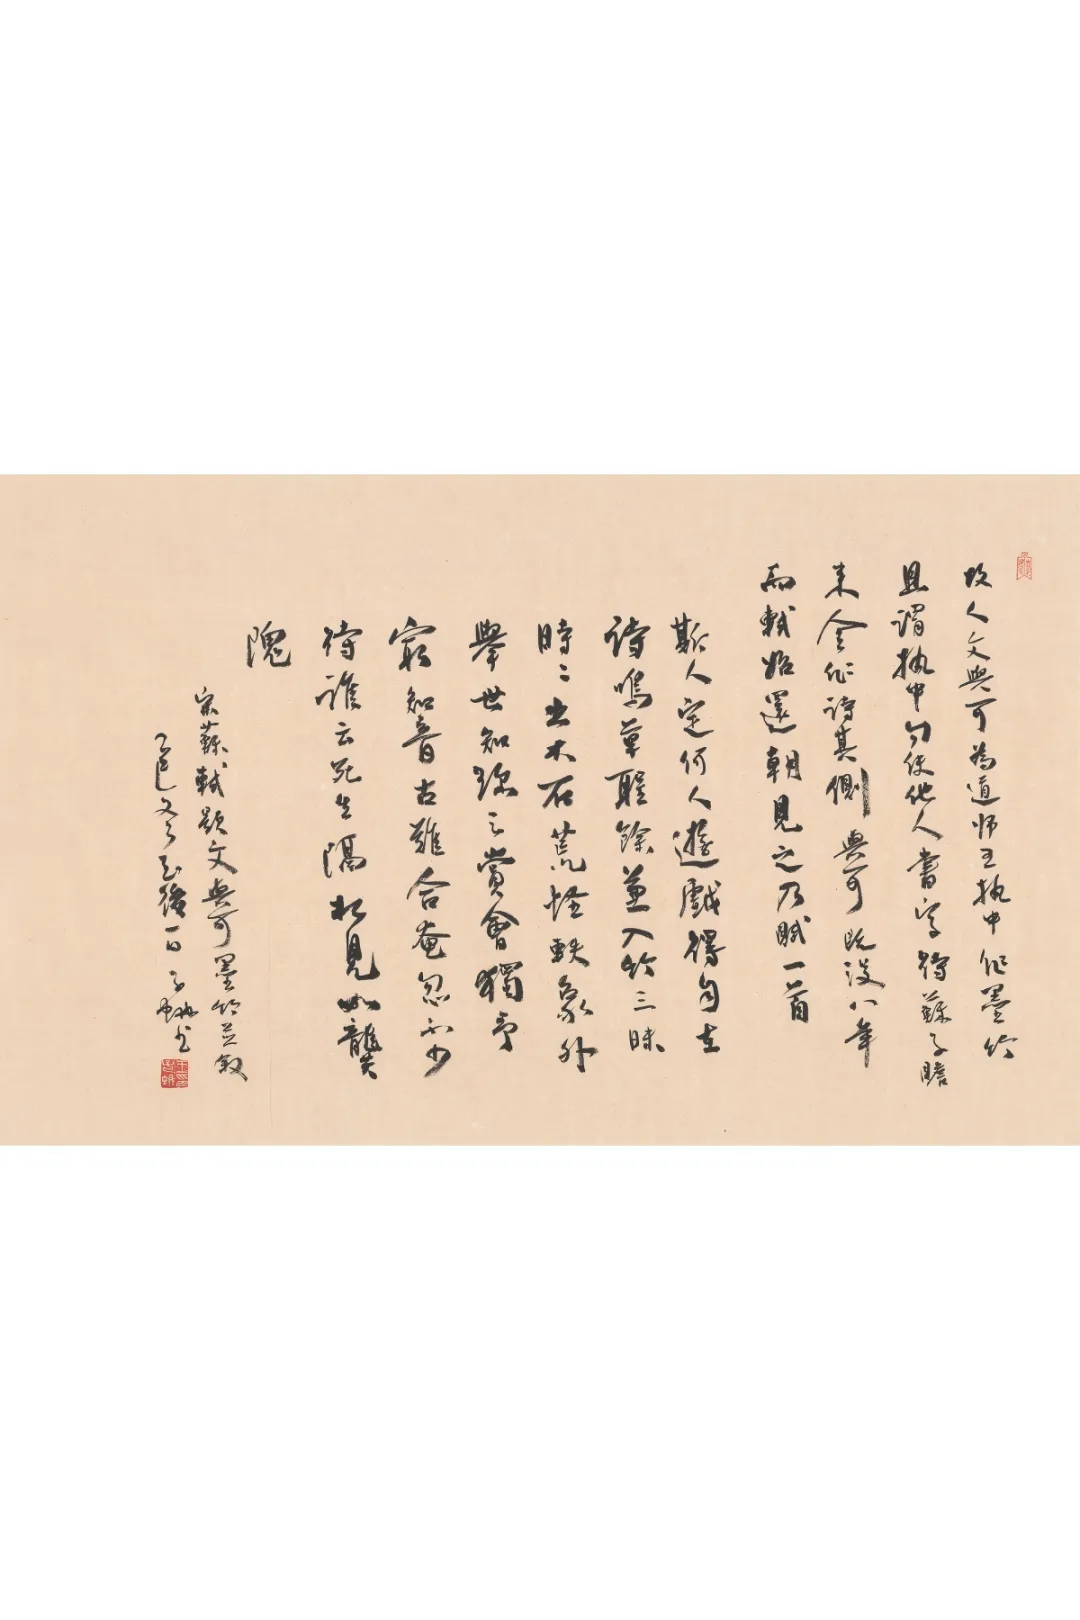 故人文與可為道师王执中作墨竹
且謂执中勿使他人書字待蘇子瞻
来令作詩其側與可既没八年
而軾始還朝見之乃賦一首
斯人定何人遊戲得自在
诗鳴草聖餘兼入竹三昧
時二出木石荒怪軼象外
舉世知珍之賞會獨予
窮知音古難合奄忽不少
待誰云死生隔相見如龔
隗
宋蘇軾題文與可墨竹并叙
乙巳冬至後一日子